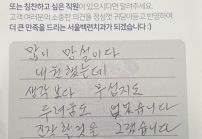 또는 칭찬하고 싶은 직원이 있으시다면 알려주세요.
고객 여러분의 소중한 의견을 정성껏 귀담아듣고 반영하여
더 큰 만족을 드리는 서울백런치과가 되겠습니다 :)
많이 망설이다
내원했는데
생각보다 무섭지도
두려움도 없었습니다